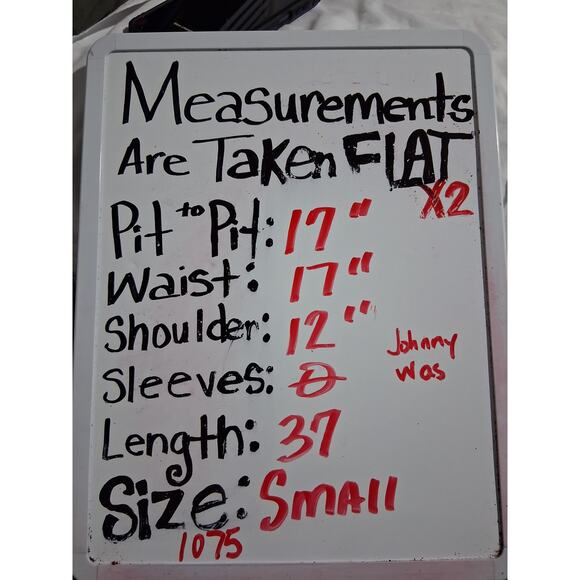 Measurements
Are Taken FLAT
X2
Pit to Pit: 17"
Waist: 17"
Shoulder: 12"
Johnny
Was
Sleeves: 0
Length: 37
Size: Small
1075